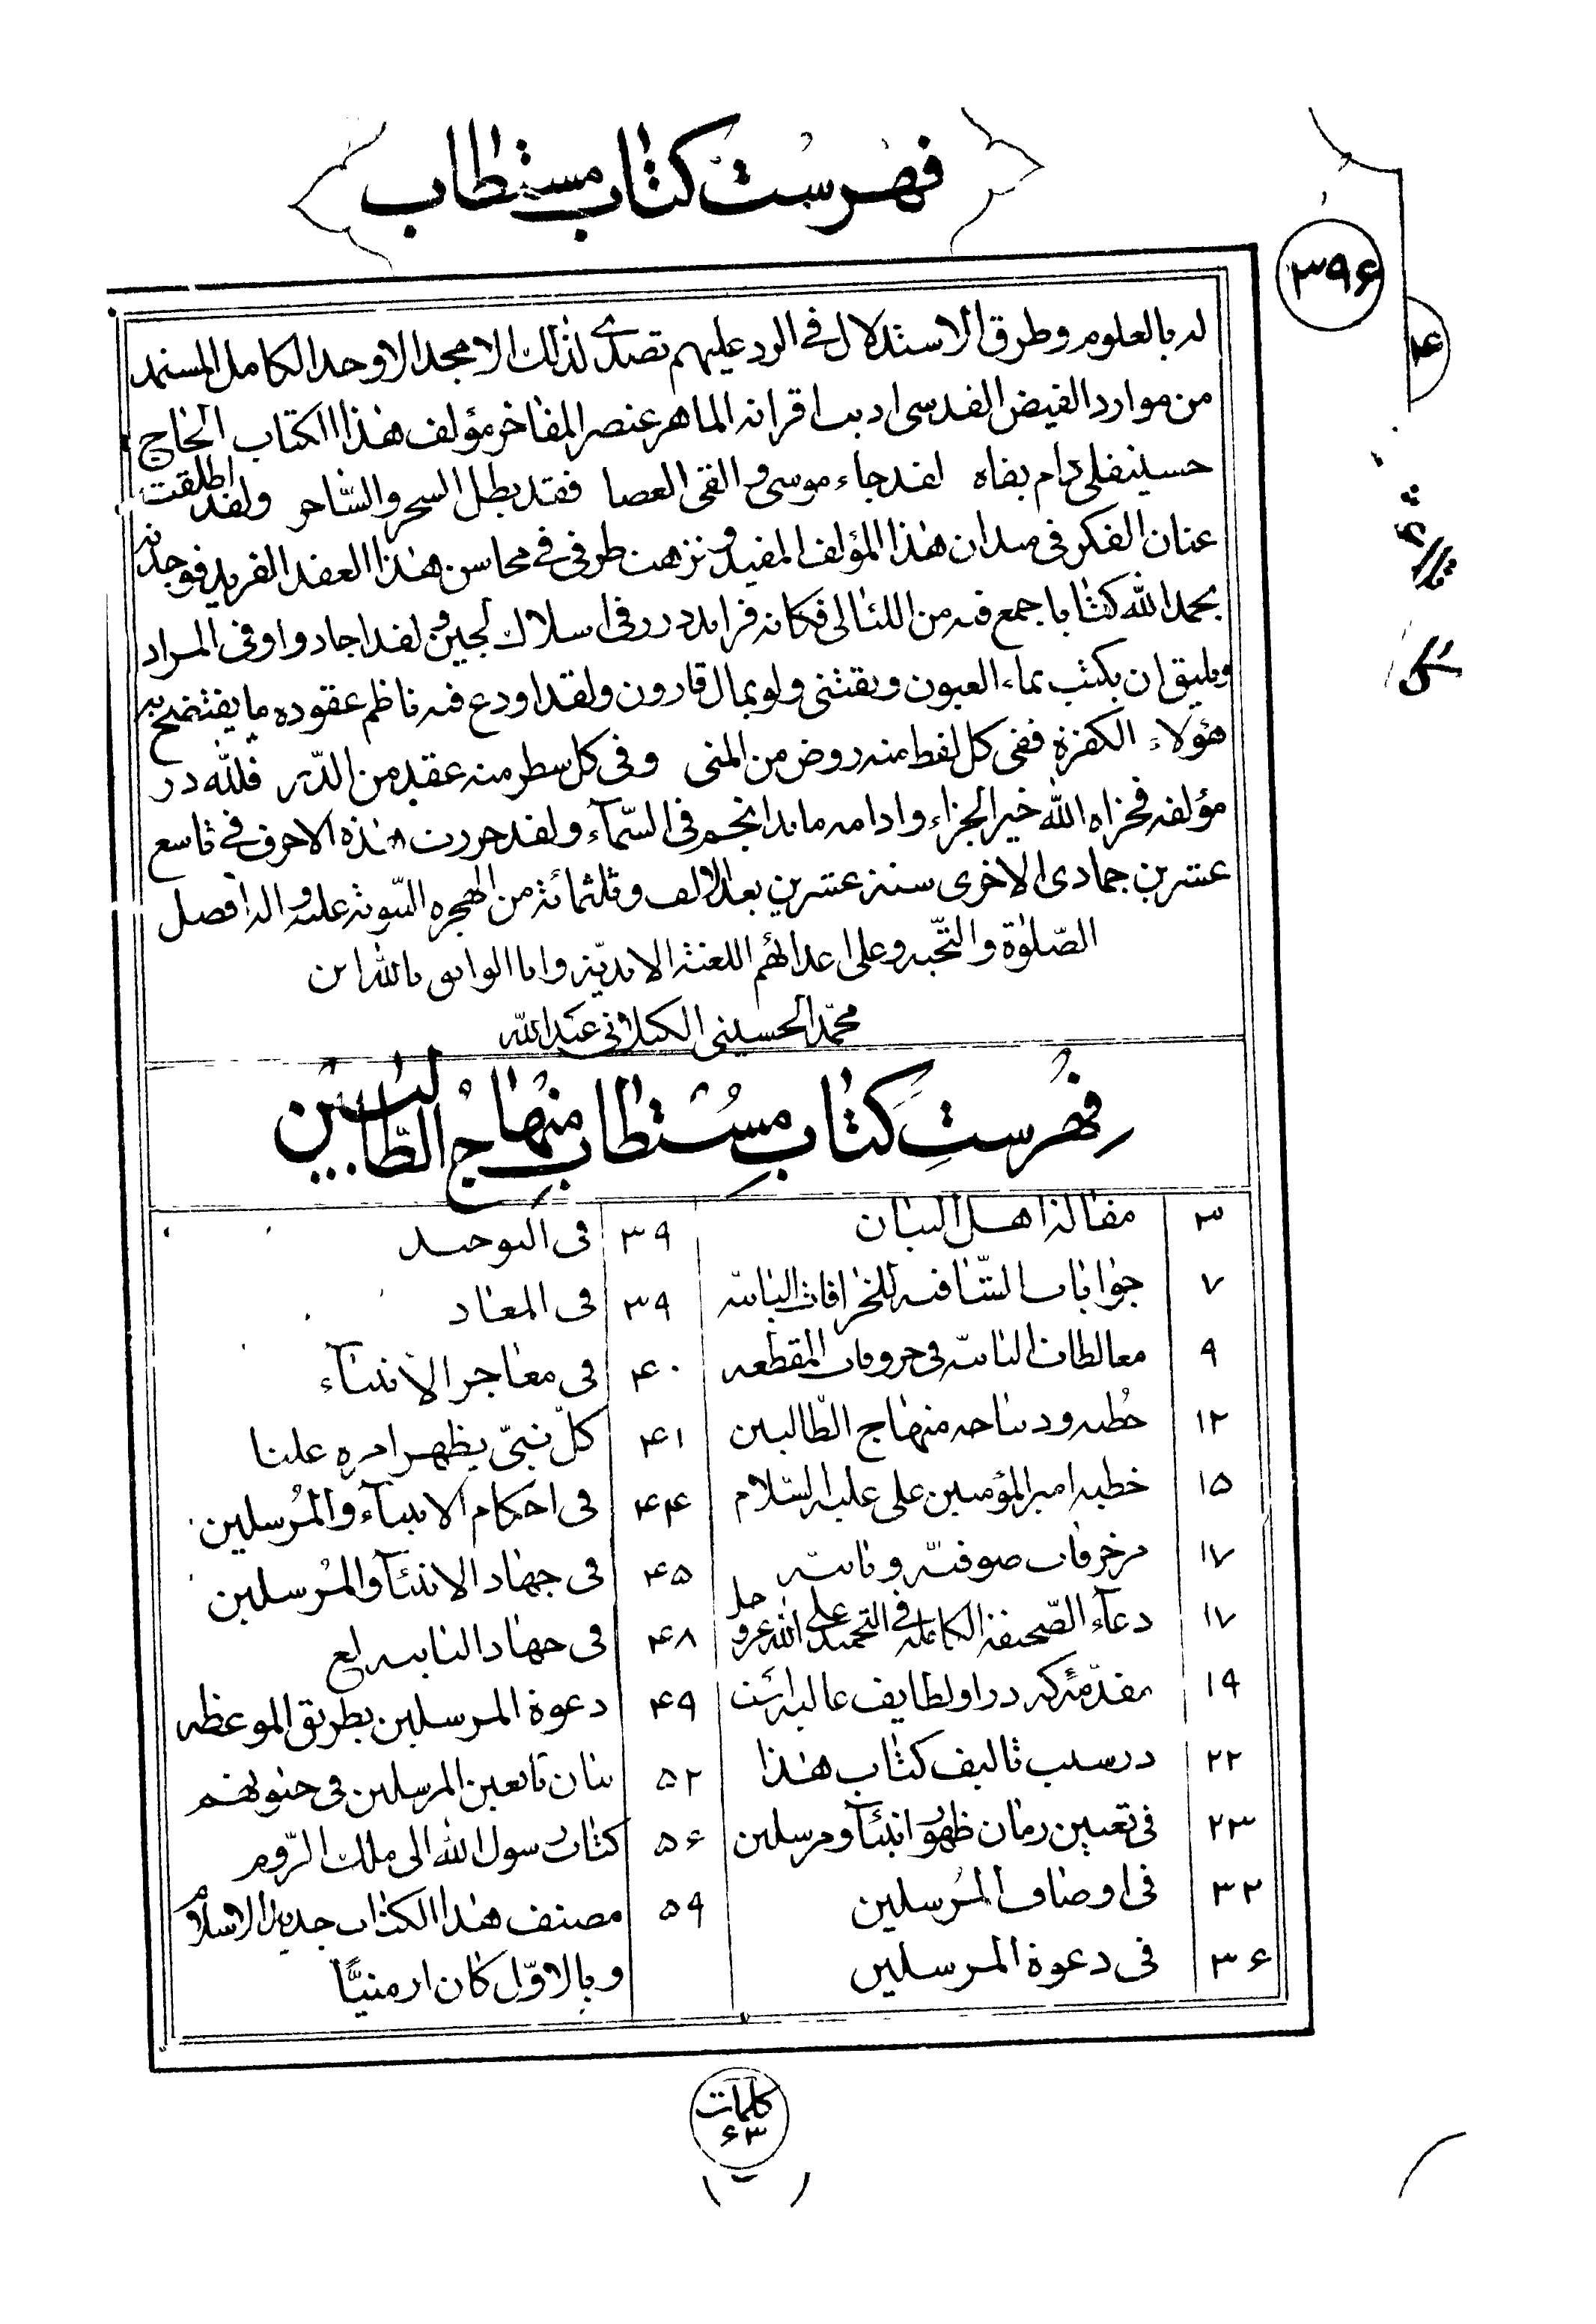 فهرست کتاب مستطاب
۳۹۶
له بالعلوم وطرق الاستدلال فی الرد علیهم تصدی لذلک الامجد الاوحد الکامل المستمد
من موارد الفیض القدسی ادیب اقرانه الماهر عنصر المفاخر مؤلف هذا الکتاب الحاج
حسینقلی دام بقاه لقد جاء موسی و القی العصا فقد بطل السحر والساحر ولقد اطلقت
عنان الفکر فی میدان هذا المؤلف المفید و نزهت طرفی فی محاسن هذا العقد الفرید فوجدته
بحمد الله کتابا جمع فیه من اللئالی فکانه فراید درر فی اسلاک لجین و لقد اجاد و اوفی المراد
ویلیق ان یکتب بماء العیون و یقتنی ولو بمال قارون ولقد اودع فیه ناظم عقوده ما یفتضح به
هؤلاء الکفرة ففی کل لفظ منه روض من المنی وفی کل سطر منه عقد من الدّر فلله در
مؤلفه فجزاه الله خیر الجزاء وادامه ما بدا نجم فی السّمآء ولقد حررت هذه الاحرف فی تاسع
عشرین جمادی الاخری سنة عشرین بعد الالف وثلثمائة من الهجره النبویة علیه و اله افضل
الصّلوٰة والتّحیه وعلی اعدائهم اللعنة الابدیّه وانا الواثق بالله ابن
محمّد الحسینی الکیلانی عبدالله
فهرست کتاب مستطاب منهاج الطّالبین
۳ مقالة اهل البیان
۷ جوابات الشّافیه للخرافات البابیّه
۹ مغالطات البابیّه فی حروفات المقطعه
۱۲ خطبه و دیباچه منهاج الطّالبین
۱۵ خطبه امیر المؤمنین علی علیه السّلام
۱۷ مزخرفات صوفیّه و بابیّه
۱۷ دعآء الصّحیفة الکامله فی التحمید علی الله عزو جل
۱۹ مقدّمه که در او لطایف عالیه است
۲۲ در سبب تالیف کتاب هذا
۲۳ فی تعیین زمان ظهور انبیآء و مرسلین
۳۲ فی اوصاف المُرسلین
۳۶ فی دعوة المرسلین
۳۹ فی التوحید
۳۹ فی المعاد
۴۰ فی معاجز الانبیآء
۴۱ کلّ نبیّ یظهر امره علینا
۴۴ فی احکام الانبیآء والمُرسلین
۴۵ فی جهاد الانبیآء والمُرسلین
۴۸ فی جهاد البابیه الخ
۴۹ دعوة المرسلین بطریق الموعظه
۵۲ بیان تابعین المرسلین فی حیوتهم
۵۶ کتاب رسول الله الی ملک الرّوم
۵۹ مصنف هذا الکتاب جدید الاسلام
وبالاوّل کان ارمنیًّا
کلمات
۶۳